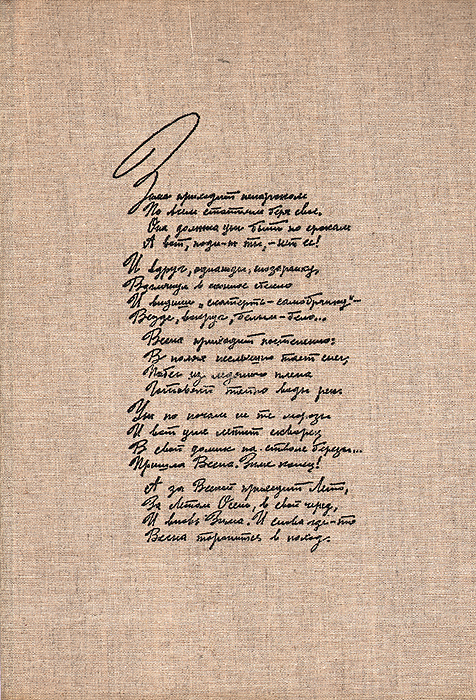 Зима приходит ненароком
По всем статьям беря свое.
Она должна уж быть по срокам
А вот, поди-ж ты, – нет ее!
И вдруг, однажды, спозаранку,
Взглянув в оконное стекло
И видишь „скатерть-самобранку“ –
Везде, вокруг, белым-бело...
Весна приходит постепенно:
В полях неслышно тает снег,
Побег из ледяного плена
Готовят тайно воды рек.
Уж по ночам не те морозы
И вот уже летит скворец
В свой домик на стволе березы...
Пришла Весна. Зиме конец!
А за Весной приходит Лето,
За Летом Осень, в свой черед,
И вновь Зима. И снова где-то
Весна торопится в поход.